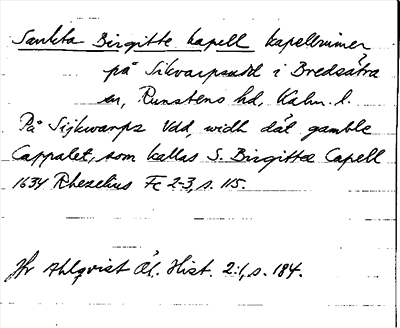 Sankta Birgitte kapell kapellruiner
på Sikvarpsudd i Bredsätra
sn, Runstens hd, Kalm. l.
På Sijkwarps Vdd, widh dät gamble
Cappalet, som kallas S. Birgittæ Capell
1634 Rhezelius Fc 2-3, s. 115.
Jfr Ahlqvist Öl. Hist. 2:1, s. 184.